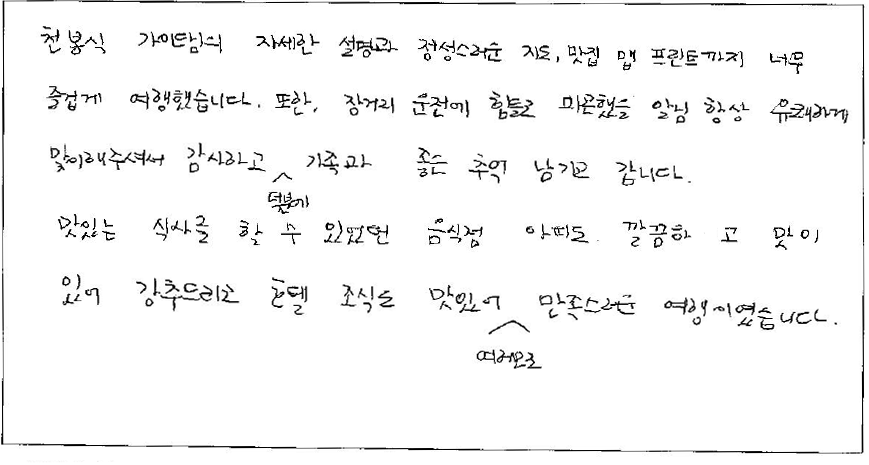 천봉식 가이드님의 자세한 설명과 정성스러운 지도, 맛집 맵 프린트까지 너무
즐겁게 여행했습니다. 또한, 장거리 운전에 힘들고 피곤했을 알님 항상 유쾌하게
맞이해주셔서 감사하고 덕분에 가족과 좋은 추억 남기고 갑니다.
맛있는 식사를 할 수 있었던 음식점 아피도 깔끔하 고 맛이
있어 강추드리고 호텔 조식도 맛있어 여러모로 만족스러운 여행이였습니다.